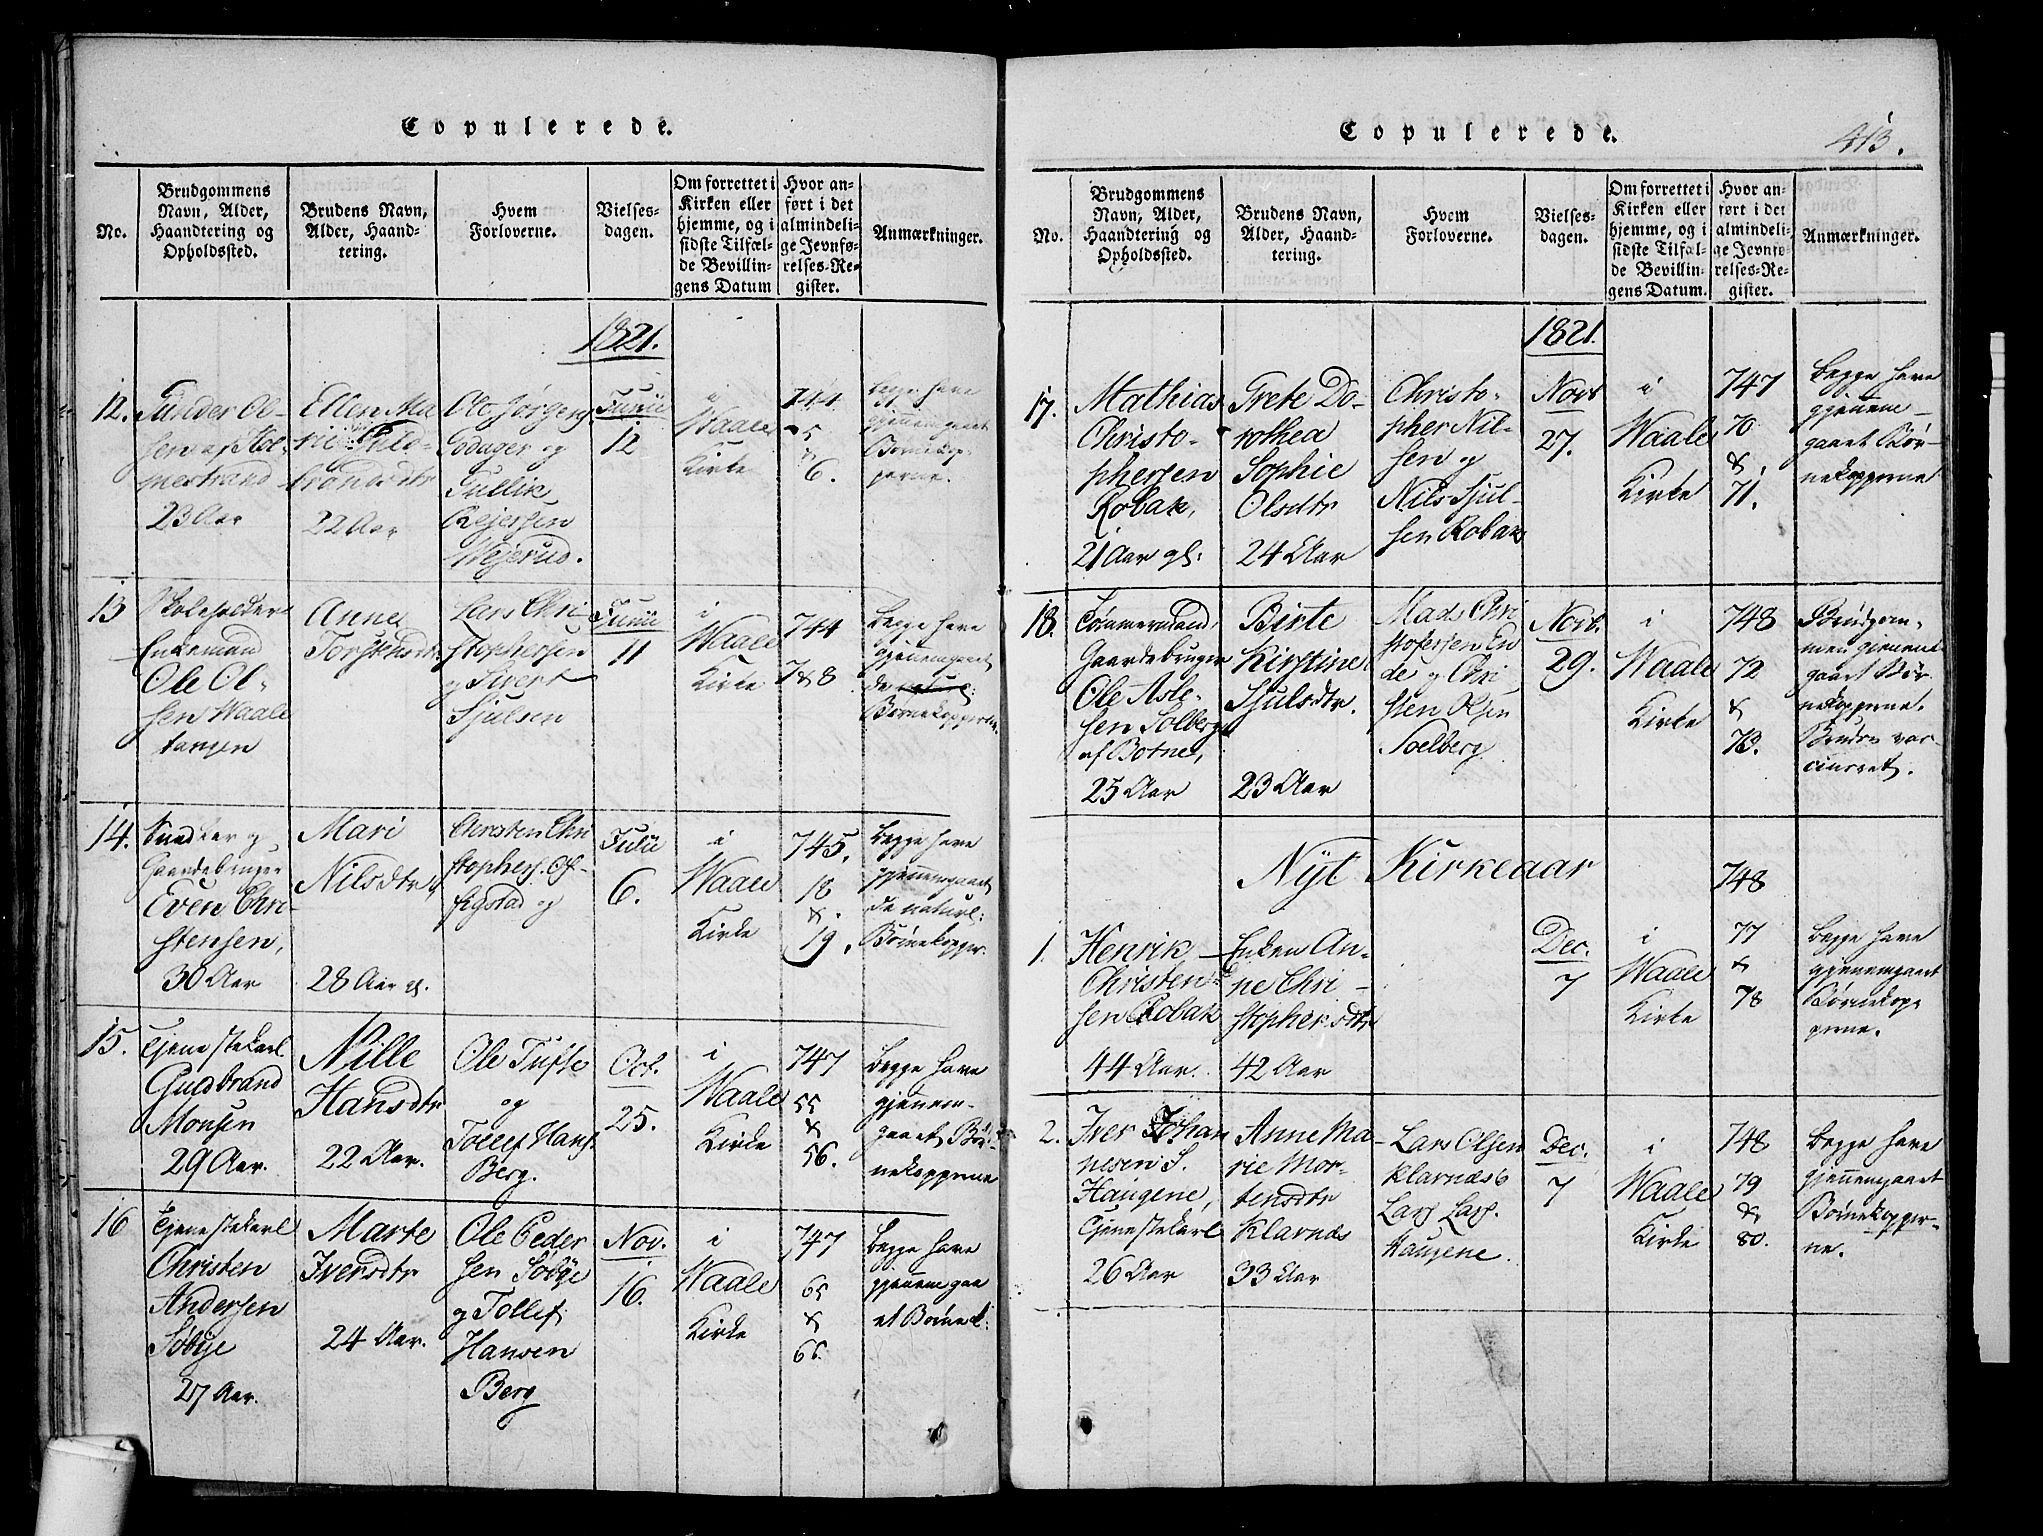 Copulerede.
No.
Brudgommens
Navn, Alder,
Haandtering og
Opholdssted.
Brudens Navn,
Alder, Haand-
tering.
Hvem
Forloverne.
Vielses-
dagen.
Om forrettet i
Kirken eller
hjemme, og i
sidste Tilfæl-
de Bevillin-
gens Datum
Hvor an-
ført i det
almindeli-
ge Jevnfø-
relses-Re-
gister.
Anmærkninger.
1821.
12.
Gunder Ol-
sen af Hol-
mestrand
23 Aar
Ellen Ma
rie Guld-
brandsdtr
22 Aar
Ole Jørgens.
Godager og
Gullik
Rejersen
Wejerud.
Junii
12
i
Waale
Kirke
744
5
&
6.
begge have
gjennemgaaet
Børnekop-
perne.
13
Skoleholder
Enkemand
Ole Ol-
sen Waale
tangen
Anne
Torstensdtr
Lars Chri
stophersen
og Sivert
Sjulsen
Junii
11
i
Waale
Kirke
744
7&8
begge have
gjennemgaaet
de naturl:
Børnekopperne.
14.
Snedker og
Gaardebruger
Even Chri-
stensen,
30 Aar
Mari
Nilsdtr
28 Aar gl.
Christen Chri
stophers. Ol-
og
Julii
6.
i
Waale
Kirke
745.
18
&
19.
begge have
gjennemgaaet
de naturl:
Børnekopper.
15.
Tjenestekarl
Guldbrand
Monsen
29 Aar.
Nille
Hansdtr
22 Aar.
Ole Tufte
og
Tollef Hans.
Berg.
Oct.
25.
i
Waale
Kirke
747
55
&
56.
begge have
gjennem-
gaaet Bør-
nekopperne
16
Tjenestekarl
Christen
Andersen
Søbye
27 Aar.
Marte
Iversdtr
24 Aar.
Ole Peder
sen Søbye
og Tollef
Hansen
Berg
Nov.
16.
i
Waale
Kirke
747
65
&
66.
begge have
gjennemgaa
et Børnek:
Copulerede.
413.
No.
Brudgommens
Navn, Alder,
Haandtering og
Opholdssted.
Brudens Navn,
Alder, Haand-
tering.
Hvem
Forloverne.
Vielses-
dagen.
Om forrettet i
Kirken eller
hjemme, og i
sidste Tilfæl-
de Bevillin-
gens Datum.
Hvor an-
ført i det
almindeli-
ge Jevnfø-
relses-Re-
gister.
Anmærkninger.
1821.
17.
Mathias
Christo-
phersen
Robak,
21 Aar gl:
Grete Do-
rothea
Sophie
Olsdtr
24 Aar
Christo-
pher Nil-
sen og
Nils Sjul-
sen Robak
Novb
27.
i
Waale
Kirke
747
70
&
71.
begge have
gjennem-
gaaet Bør-
nekopperne
18.
Tømmermand
Gaardebruger
Ole Asle-
sen Solberg
af Botne,
25 Aar
Birte
Kirstine
Sjulsdtr.
23 Aar
Mads Chri
stofersen En
de og Chri
sten Olsen
Soelberg
Novb.
29.
i
Waale
Kirke
748
72
&
73.
Brudgom-
men gjennem
gaaet Bør
nekopperne.
Bruden vac-
cineret.
Nyt Kirkeaar
748
1.
Henrik
Christen-
sen Robak
44 Aar.
Enken An-
ne Chri-
stophersdtr
42 Aar
Dec.
7
i
Waale
Kirke
77
&
78
begge have
gjennemgaaet
Børnekop-
perne.
2.
Iver Johan
nesen S.
Haugene,
Tjenestekarl
26 Aar
Anne Ma-
rie Mor-
tensdtr
Klarnæs
33 Aar
Lars Olsen
Klarnæs &
Lars Lars.
Haugene.
Dec.
7
i
Waale
Kirke
748
79
&
80.
begge have
gjennemgaaet
Børnekopper-
ne.